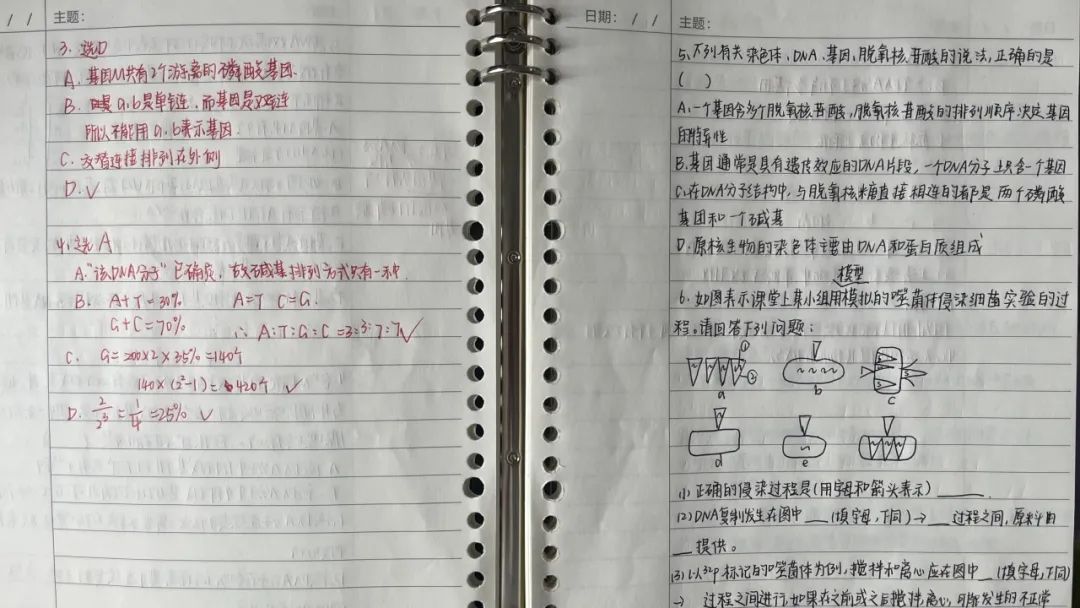 / /
主题:
3. 选D
A. 基因M共有2个游离的磷酸基团.
B. 但是 a,b是单链,而基因是双链
所以不能用a.b表示基因.
C. 交替连接排列在外侧
D. ✓
4. 选A
A."该DNA分子"已确定,故碱基排列方式只有一种.
B. A+T=30% A=T C=G.
G+C=70% ∴ A:T:G:C=3:3:7:7✓
C. G=200×2×35%=140个
140×(2²-1)=420个 ✓
D. 2/2³=1/4=25% ✓
日期: / /
主题:
5、下列有关染色体、DNA、基因、脱氧核苷酸的说法,正确的是
( )
A、一个基因含多个脱氧核苷酸,脱氧核苷酸的排列顺序决定基因
的特异性
B.基因通常是具有遗传效应的DNA片段,一个DNA分子上只含一个基因
C.在DNA分子结构中,与脱氧核糖直接相连的都是两个磷酸
基团和一个碱基
D.原核生物的染色体主要由DNA和蛋白质组成
模型
6. 如图表示课堂上某小组用模拟的噬菌体侵染细菌实验的过
程.请回答下列问题:
①
②
a b c
d e
(1)正确的侵染过程是(用字母和箭头表示)______.
(2)DNA复制发生在图中__(填字母,下同)→__过程之间,原料由
__提供。
(3)以³²P标记的噬菌体为例,搅拌和离心应在图中__(填字母,下同)
→__过程之间进行,如果在之前或之后搅拌离心,可能发生的不正常